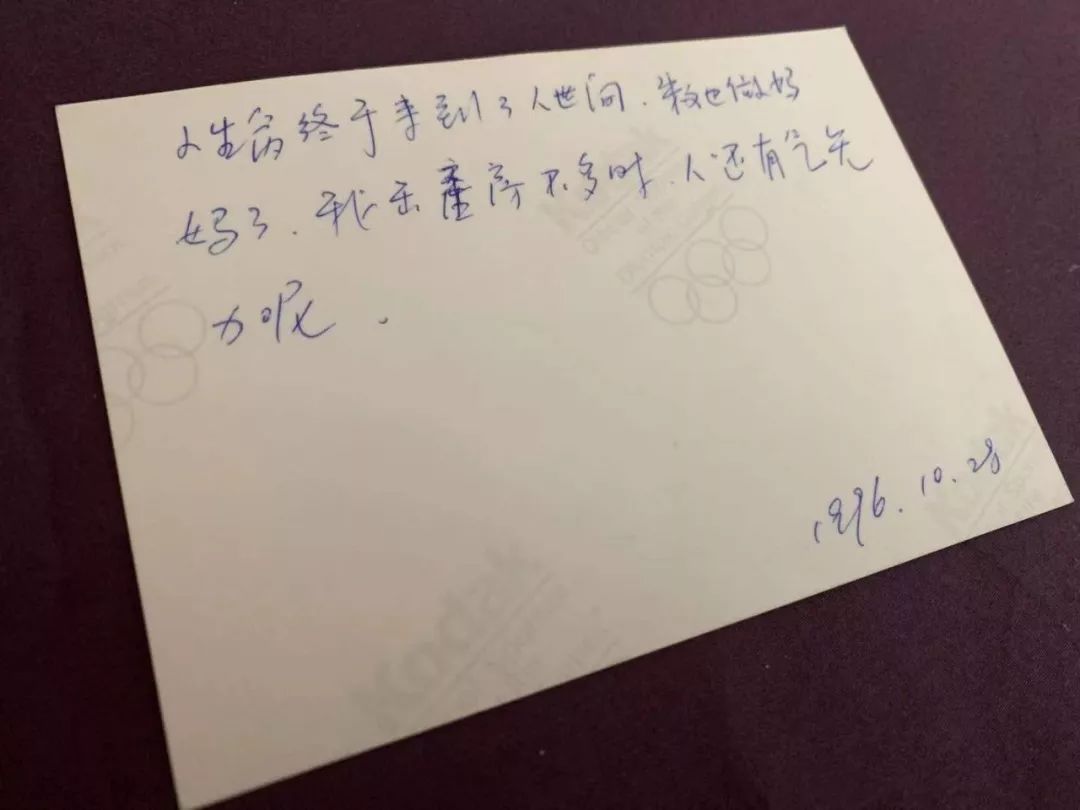 小生命终于来到了人世间.我也做妈
妈了.我出产房不多时.人还有气无
力呢.
1996.10.28
Kodak
Kodak
Kodak